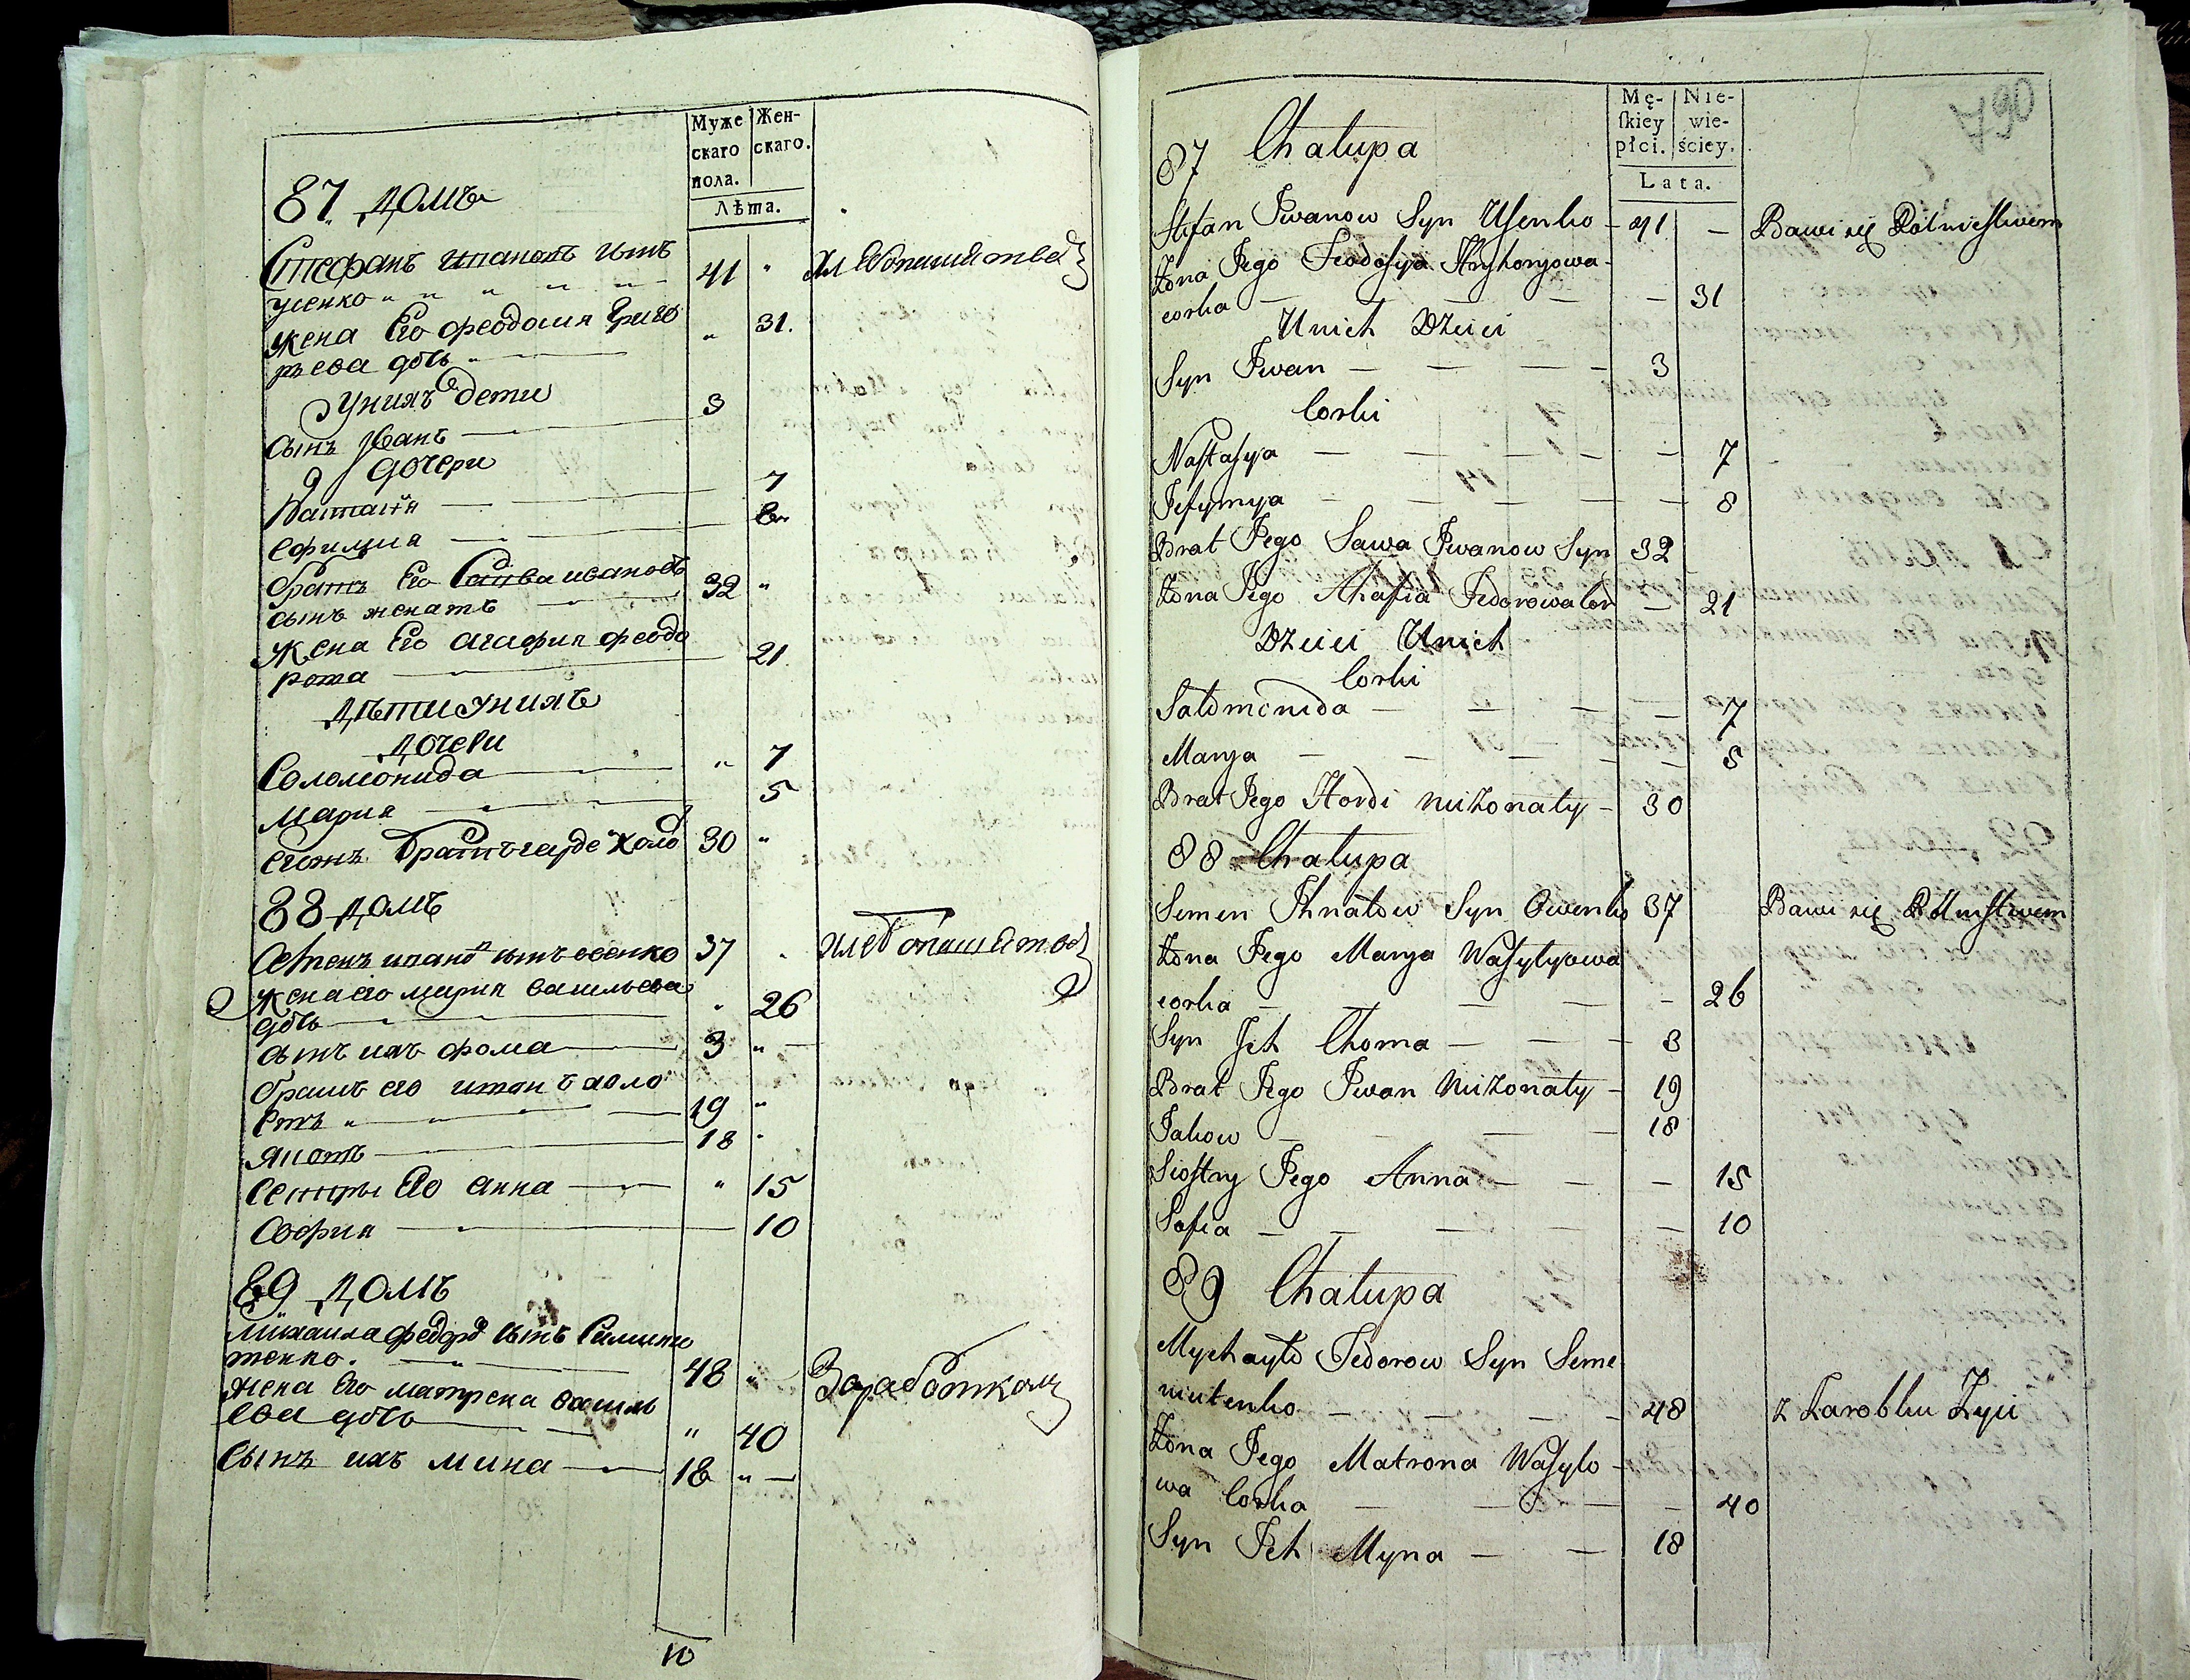 Муже
скаго
пола.
Жен-
скаго.
Лѣта.
87 домъ
Стефанъ ивановъ сынъ
усенко 41 хлебопашествоⷨ
жена Его феодосия Григо
рьева дочь 31.
Унихъ дети
сынъ Иванъ 3
дочери
Настасия 7
Ефимия 8
братъ Его Савва ивановъ
сынъ женатъ 32
жена Его агафия феодо
рова 21
дѣти унихъ
дочери
Соломонида 7
мария 5
Егожъ братъ гарде холо 30
88 домъ
Семенъ игнатовъ сынъ овенко 37 хлебопашество
жена его мария васильева
дочь 26
сынъ ихъ фома 3
братъ его иванъ холо
стъ 19
яковъ 18
сестры Его анна 15
софия 10
89 домъ
михаила федоровъ сынъ Симини
тенко. 48 Заработкомъ
жена Его матрена василь
ева дочь 40
Сынъ ихъ мина 18
10
Mę-
skiey
płci.
Nie-
wie-
ściey.
Lata.
87 Chałupa
Stefan Jwanow Syn Usenko - 41 — Bawi się Rolnictwem
Żona Jego Feodosya Hryhoryowa
corka — 31
Unich Dzieci
Syn Jwan — 3
Corki
Nastasya — 7
Jefymya — 8
Brat Jego Sawa Jwanow Syn 32
Żona Jego Ahafia Fedorowa Cor — 21
Dzieci Unich
Corki
Sałomonida — 7
Marya — 5
Brat Jego Hordi nieżonaty - 30
88 Chałupa
Semen Ihnatow Syn Owenko 37 Bawi się Rolnictwem
Żona Jego Marya Wasylyowa
corka — 26
Syn Jch Choma — 3
Brat Jego Jwan Nieżonaty - 19
Jakow — 18
Siostry Jego Anna — 15
Sofia — 10
89 Chałupa
Mychayło Fedorow Syn Seme
niutenko — 48 z Zarobku Żyie
Żona Jego Matrona Wasylo-
wa Corka — 40
Syn Jch Myna — 18